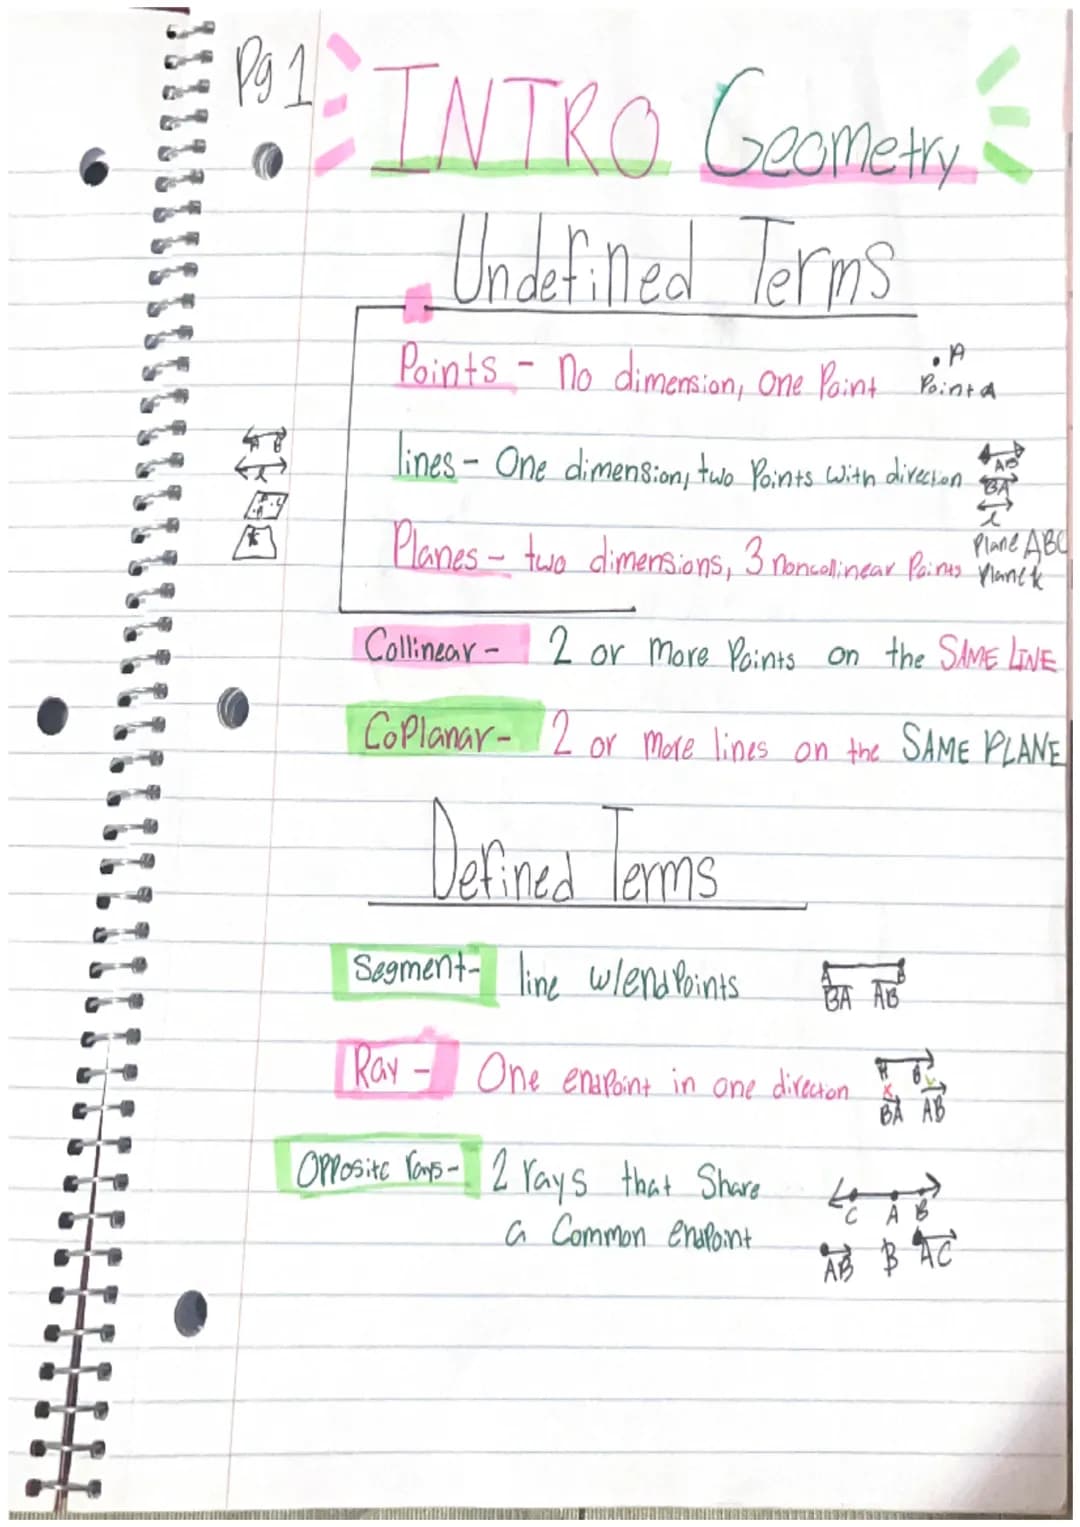 Pg 1
INTRO Geometry
Undefined Terms
Points - no dimension, One Point
• A
Point A
lines - One dimension, two Points with direction
AB
BA
l
A B
l
Planes - two dimensions, 3 noncollinear Points
Plane ABC
Plane k
Collinear - 2 or more Points on the SAME LINE
CoPlanar - 2 or more lines on the SAME PLANE
Defined Terms
Segment - line w/endPoints
A B
BA AB
Ray - One endpoint in one direction
A B
x
BA AB
Opposite rays - 2 rays that Share
a Common endpoint
C A B
AB AC